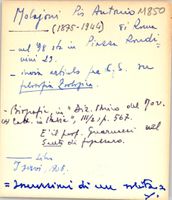 Molajoni Pio Antonio 1850
(1875-1944) di Roma
- nel 98 sta in Piazza Rondi-
nini 29.
- invia articolo per C.S. su
filosofia Zoologica.
- Biografia, in "Diz. Bino del Mov.
Catt. in Italia", III/2, p. 567.
È il prof. Guarnieri nel
Santo di Fogazzaro.
= souvenirs di un solitario